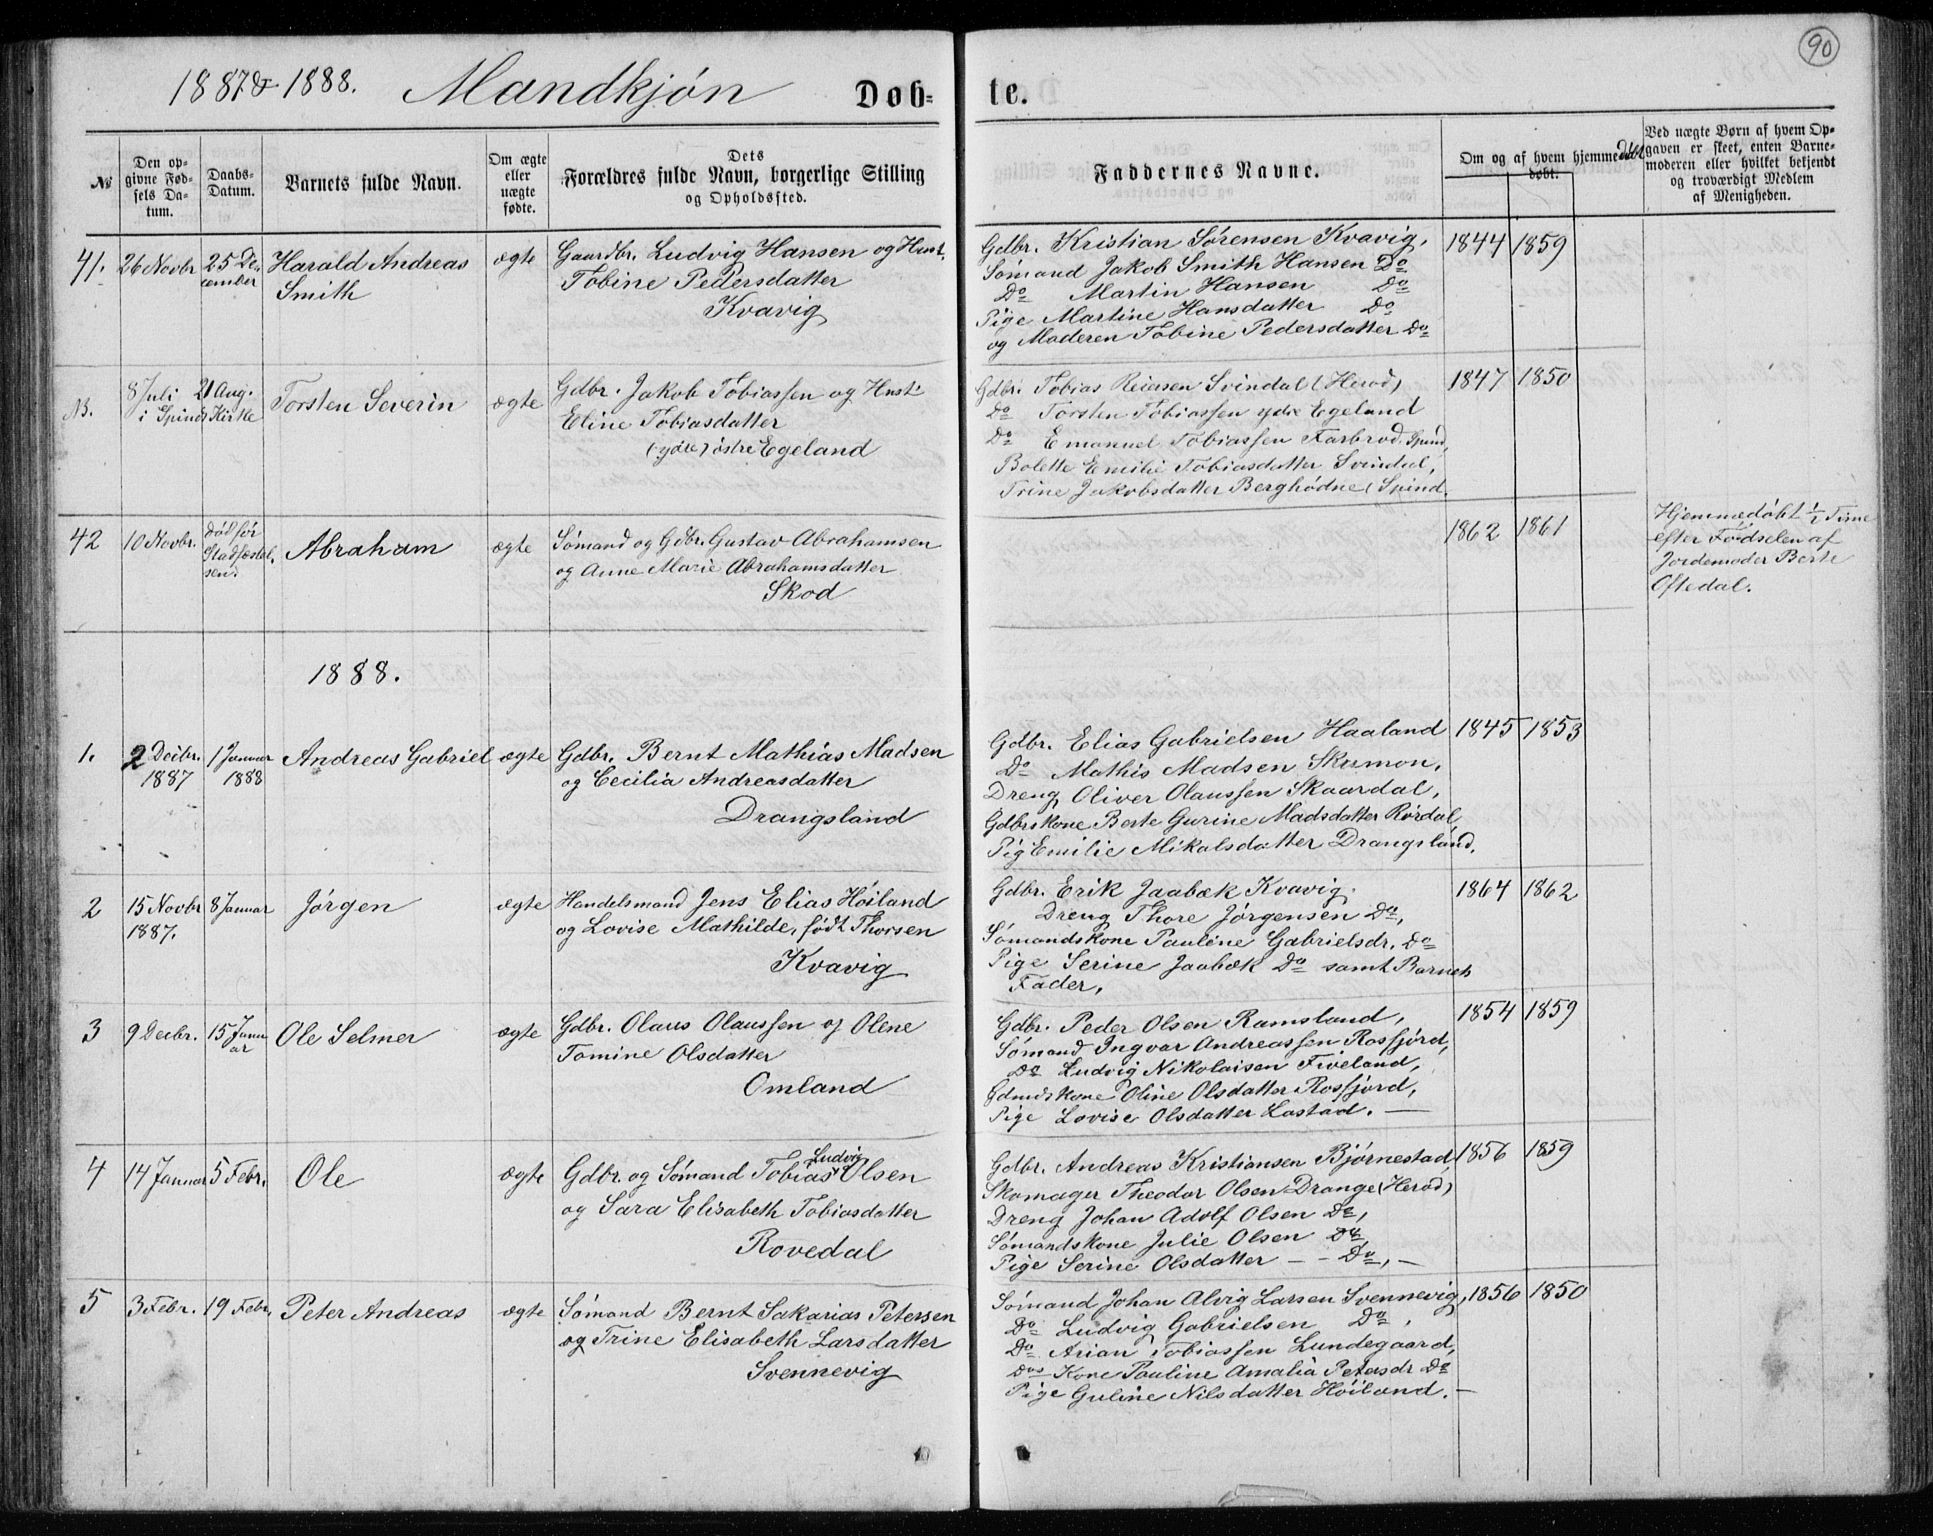 90
1887 & 1888. Mandkjøn Døb- te.
№
Den op-
givne Fød-
sels Da-
tum.
Daabs-
Datum.
Barnets fulde Navn.
Om ægte
eller
uægte
fødte.
Dets
Forældres fulde Navn, borgerlige Stilling
og Opholdssted.
Faddernes Navne.
Om og af hvem hjemmedøbt
døbt.
Ved uægte Børn af hvem Op-
gaven er skeet, enten Barne-
moderen eller hvilket bekjendt
og troværdigt Medlem
af Menigheden.
41. 26 Novbr 25 De-
cember
Harald Andreas
Smith
ægte
Gaardbr. Ludvig Hansen og Hust.
Tobine Pedersdatter
Kvavig
Gdbr. Kristian Sørensen Kvavig.
Sømand Jakob Smith Hansen Do
Do Martin Hansen Do
Pige Martine Hansdatter Do
og Moderen Tobine Pedersdatter Do
1844 1859
N.B. 8 Juli 21 Aug.
i Spinds Kirke
Torsten Severin
ægte
Gdbr. Jakob Tobiassen og Hust
Eline Tobiasdatter
(ydre) østre Egeland
Gdbr. Tobias Reiersen Svindal (Herod)
Do Torsten Tobiassen ydre Egeland
Do Emanuel Tobiassen Farbrod. Spind,
Bolette Emilie Tobiasdatter Svindal,
Trine Jakobsdatter Berghødne (Spind.
1847 1850
42 10 Novbr. død før
Stadfæstel.
sen.
Abraham
ægte
Sømand og Gdbr. Gustav Abrahamsen
og Anne Marie Abrahamsdatter
Skod
1862 1861
Hjemmedøbt ½ Time
efter Fødselen af
Jordemoder Berte
Oftedal.
1888.
1. 2 Decbr.
1887
1 Januar
1888
Andreas Gabriel
ægte
Gdbr. Bernt Mathias Madsen
og Cecilia Andreasdatter
Drangsland
Gdbr. Elias Gabrielsen Haaland
Do Mathis Madsen Skumon,
Dreng Oliver Olaussen Skaardal,
Gdbrskone Berte Gurine Madsdatter Rørdal
Pig Emilie Mikalsdatter Drangsland.
1845 1853
2 15 Novbr
1887.
8 Januar
Jørgen
ægte
Handelsmand Jens Elias Høiland
og Lovise Mathilde, født Thorsen
Kvavig
Gdbr. Erik Jaabæk Kvavig.
Dreng Thore Jørgensen Do,
Sømandskone Pauline Gabrielsdr. Do
Pige Serine Jaabæk Do samt Barnets
Fader,
1864 1862
3 9 Decbr. 15 Janu
ar
Ole Selmer
ægte
Gdbr. Olaus Olaussen og Oline
Tomine Olsdatter
Omland
Gdbr. Peder Olsen Ramsland,
Sømand Ingvar Andreassen Rosfjord,
Do Ludvig Nikolaisen Fiveland,
Gdmdskone Oline Olsdatter Rosfjord,
Pige Lovise Olsdatter Hastad. —
1854 1859
4 14 Januar 5 Febr.
Ole
ægte
Ludvig
Gdbr. og Sømand Tobias Olsen
og Sara Elisabeth Tobiasdatter
Rovedal
Gdbr. Andreas Kristiansen Bjørnestad
Skomager Theodor Olsen Drange (Herod)
Dreng Johan Adolf Olsen Do,
Sømandskone Julie Olsen Do
Pige Serine Olsdatter — Do, —
1856 1859
5 3 Febr. 19 Febr.
Peter Andreas
ægte
Sømand Bernt Sakarias Petersen
og Trine Elisabeth Larsdatter
Svennevig
Sømand Johan Alvig Larsen Svennevig,
Do Ludvig Gabrielsen Do,
Do Arian Tobiassen Lundegaard,
Dos Kone Pauline Amalia Petersdr Do
Pige Guline Nilsdatter Høiland. —
1856 1850